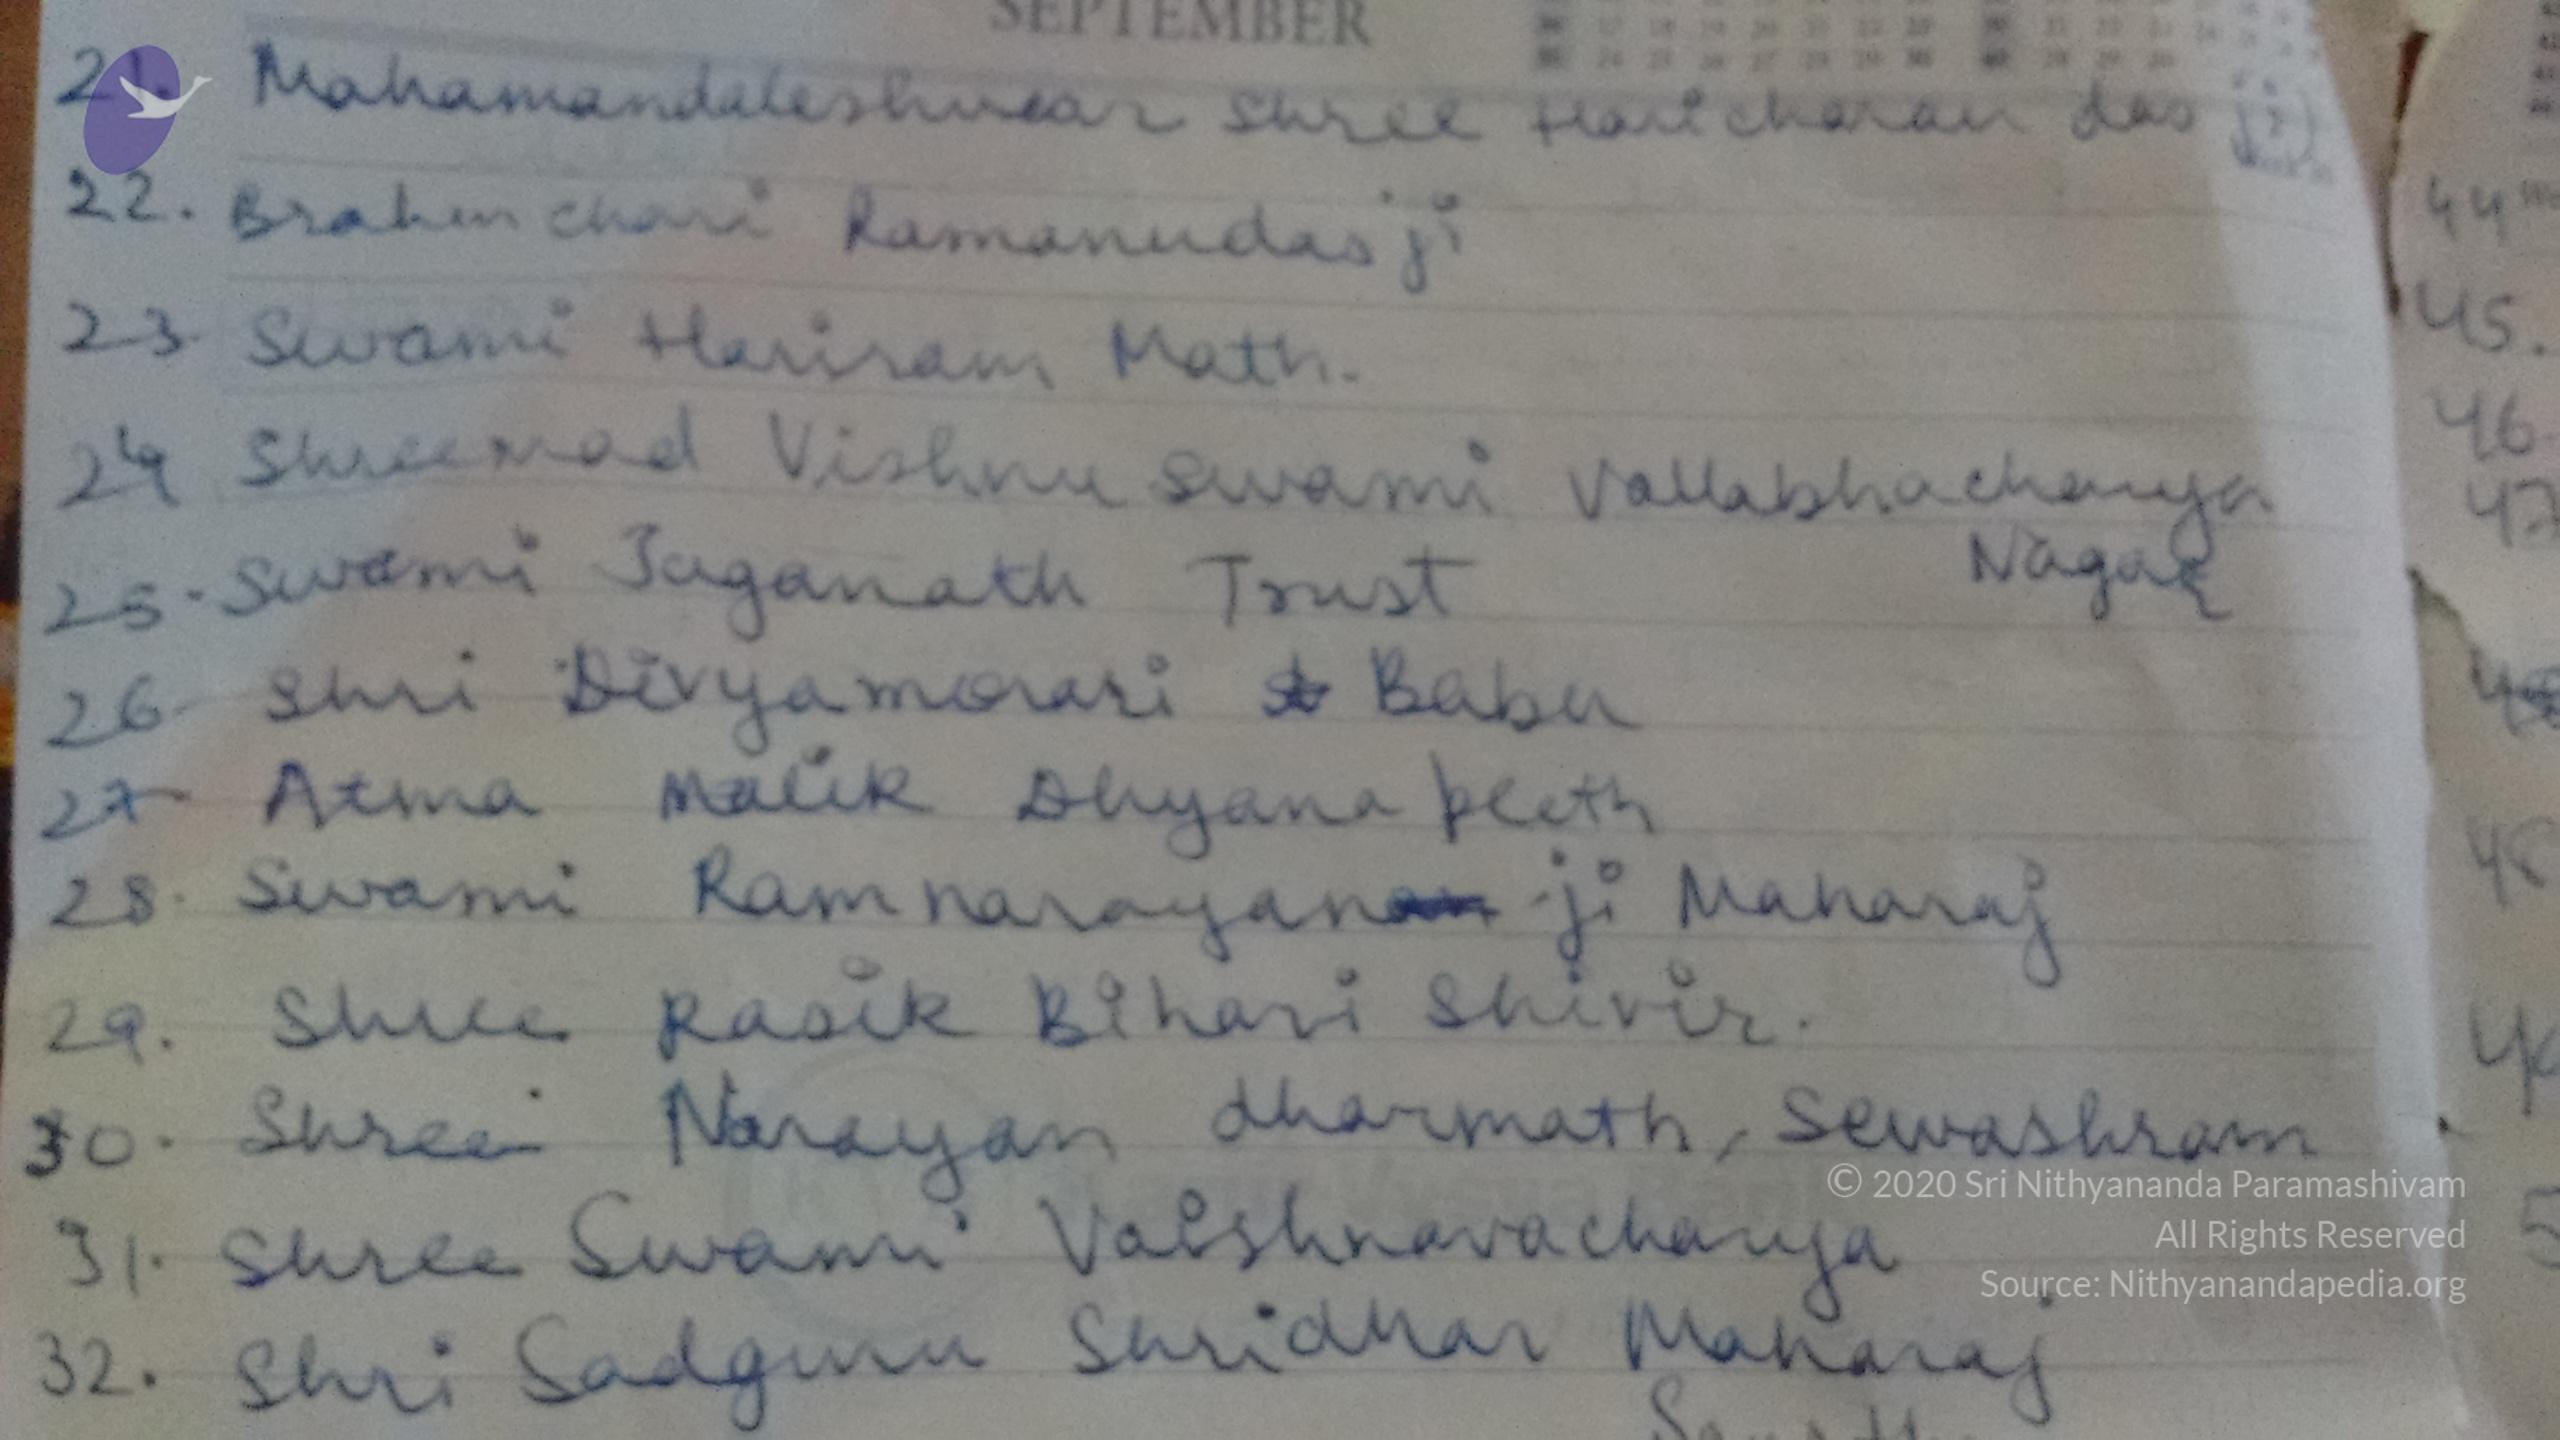 SEPTEMBER
21. Mahamandaleshwar Shree Haricharan das
22. Brahmchari Ramanudas ji
23. Swami Hariram Math.
24 Shreemad Vishnu Swami Vallabhacharya
Nagar
25. Swami Jaganath Trust
26. Shri Divyamorari Babu
27. Atma Malik Dhyana peeth
28. Swami Ramnarayan ji Maharaj
29. Shree Rasik Bihari Shivir.
30. Shree Narayan dharmath, Sewashram
31. Shree Swami Vaishnavacharya
32. Shri Sadguru Shridhar Maharaj
44
45.
46.
47
© 2020 Sri Nithyananda Paramashivam
All Rights Reserved
Source: Nithyanandapedia.org